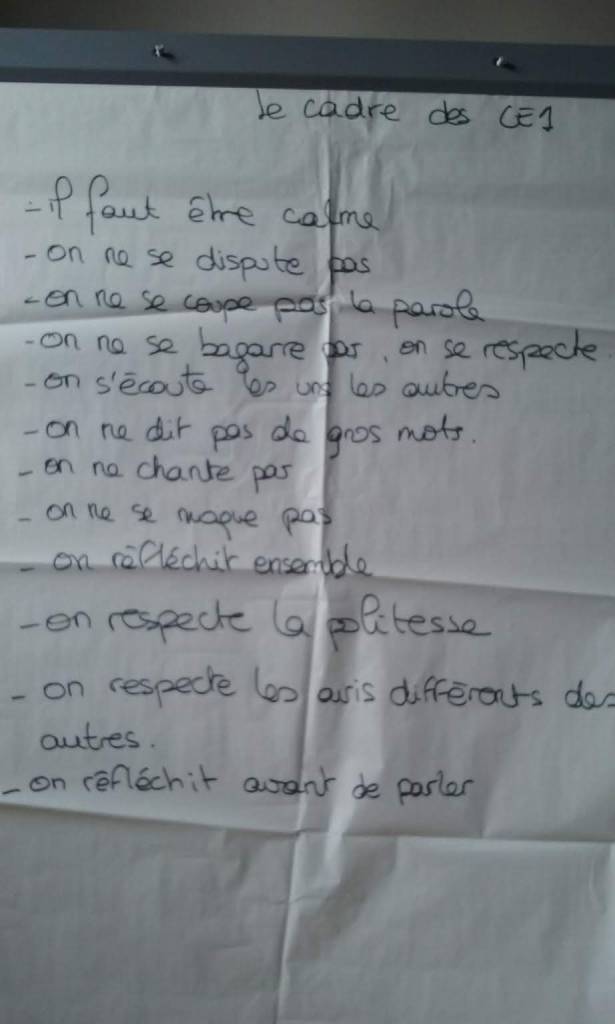 le cadre des CE1
- il faut être calme
- on ne se dispute pas
- on ne se coupe pas la parole
- on ne se bagarre pas, on se respecte.
- on s'écoute les uns les autres
- on ne dit pas de gros mots.
- on ne chante pas
- on ne se moque pas
- on réfléchit ensemble
- on respecte la politesse
- on respecte les avis différents des
autres.
- on réfléchit avant de parler